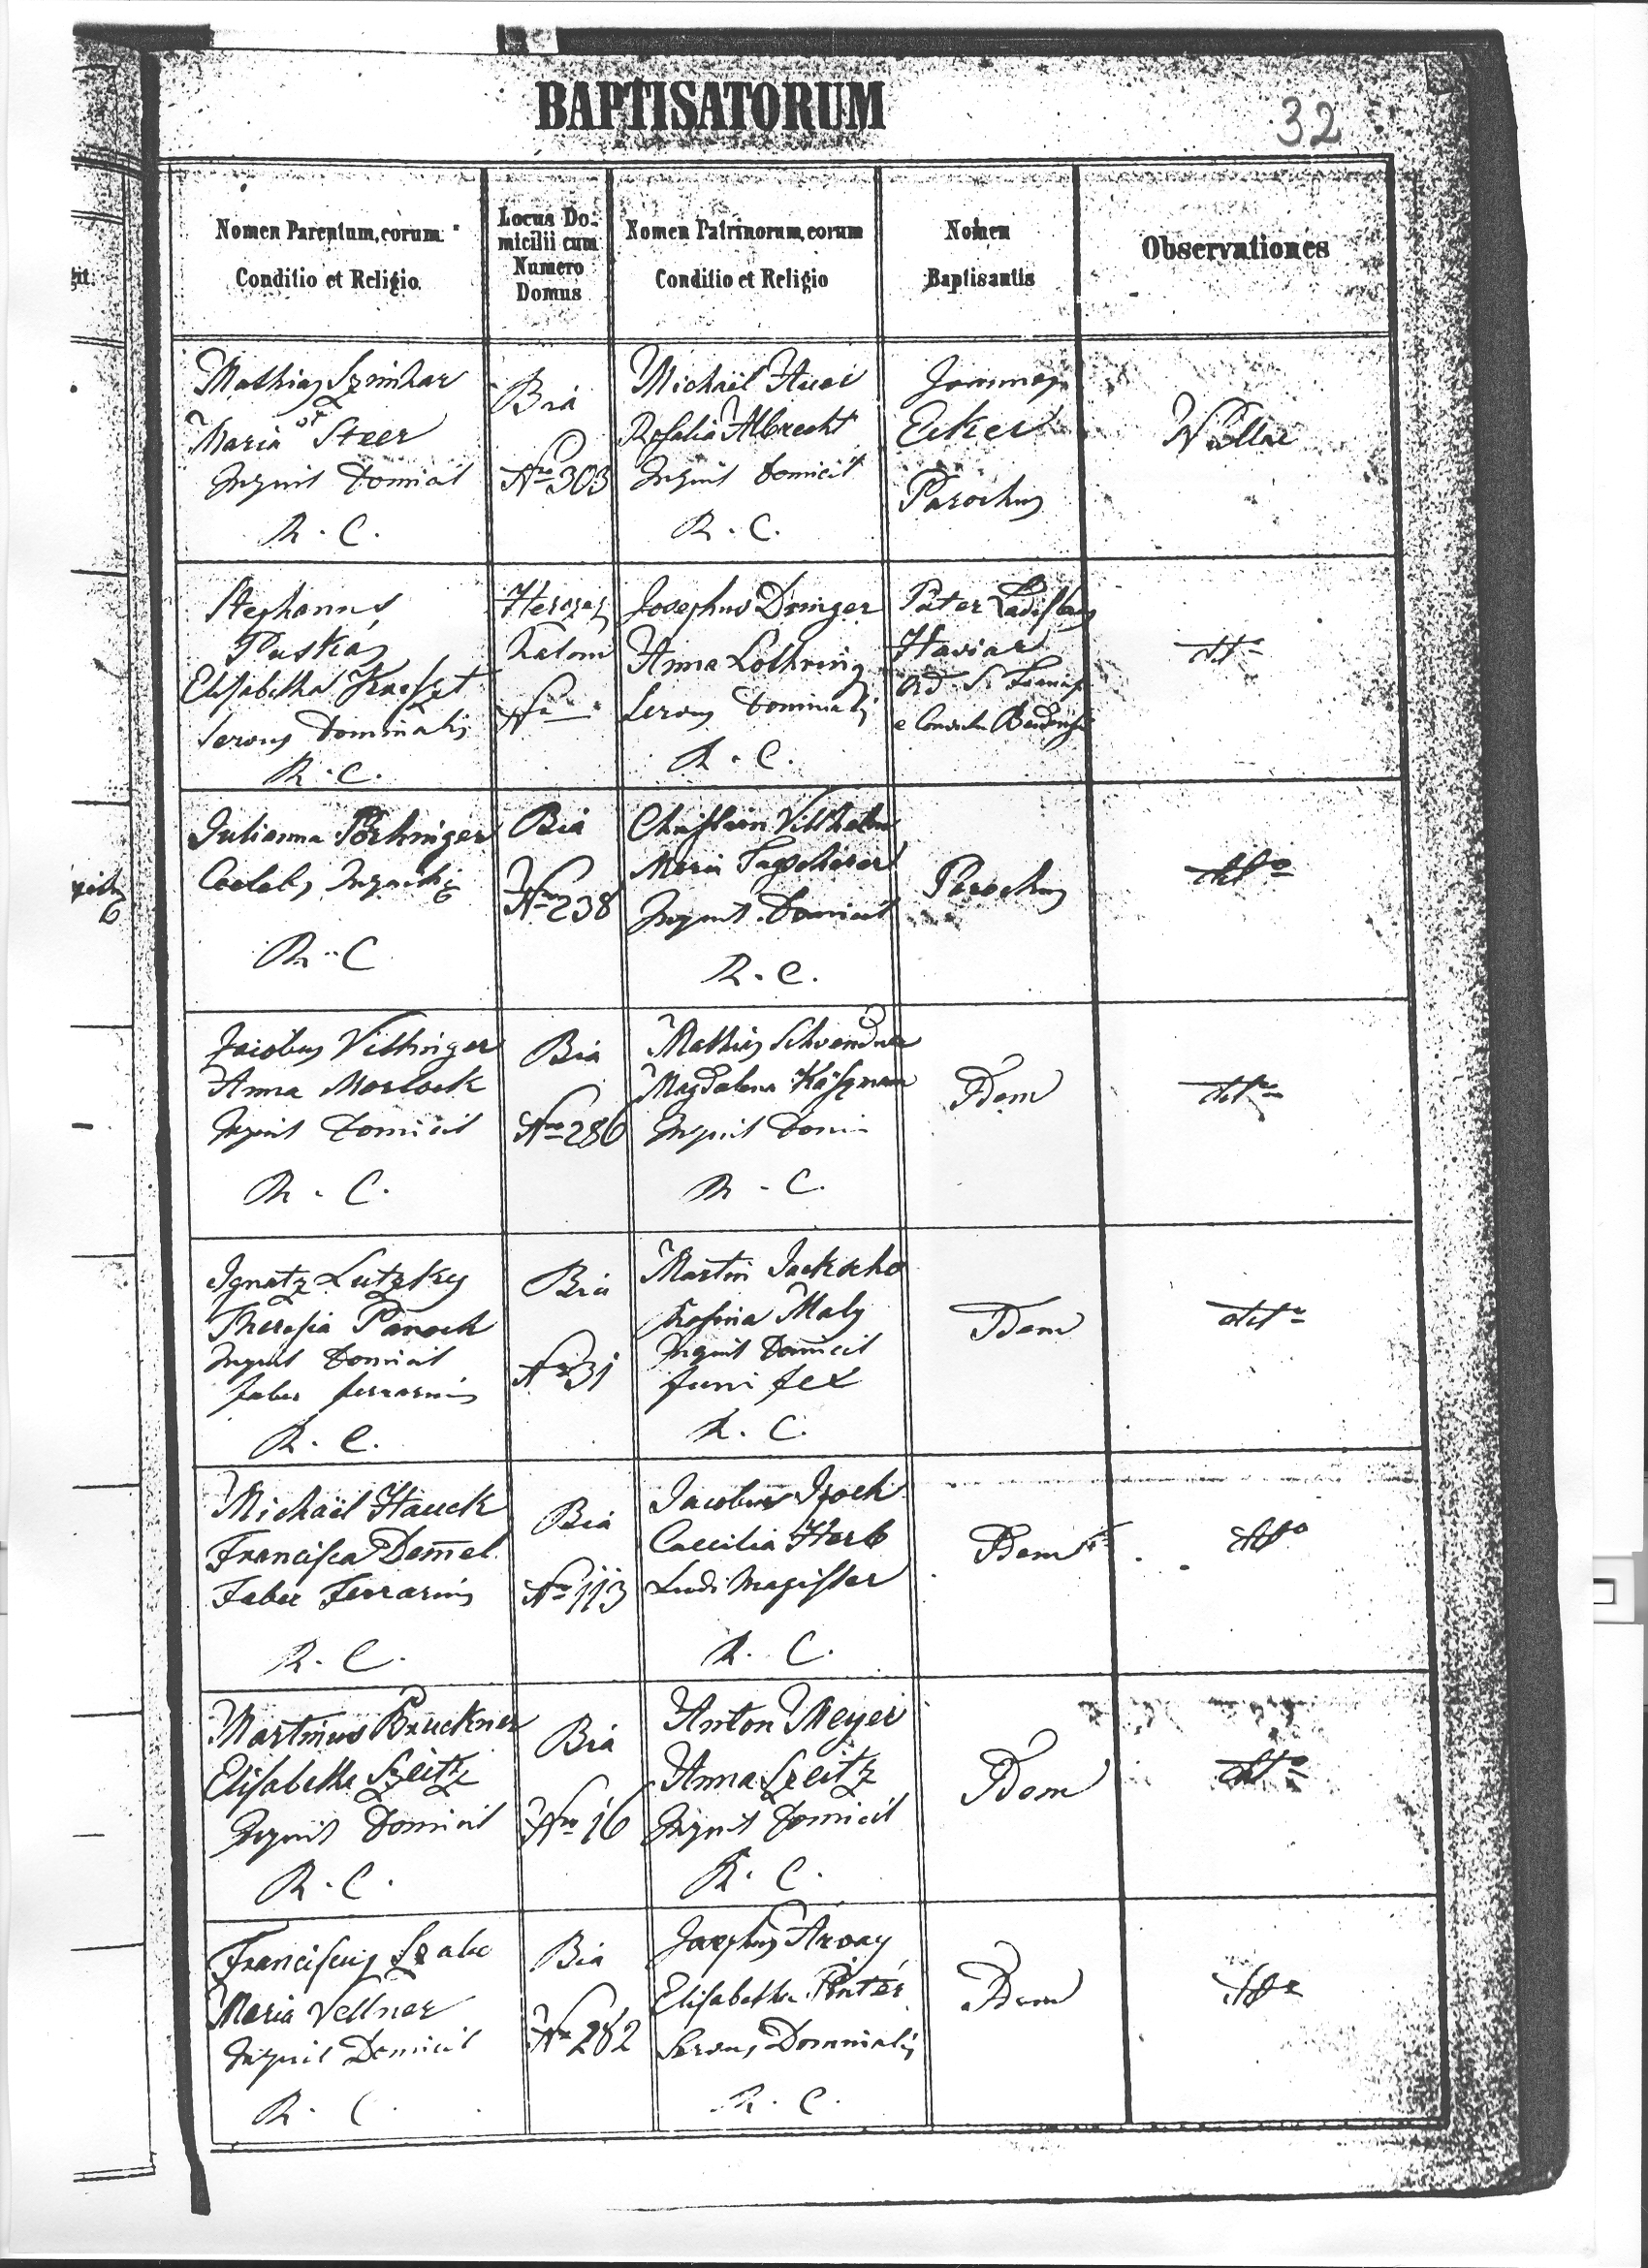 BAPTISATORUM
32
Nomen Parentum, eorum
Conditio et Religio
Locus Do-
micilii cum
Numero
Domus
Nomen Patrinorum, eorum
Conditio et Religio
Nomen
Baptisantis
Observationes
Mathias
Maria Steer
Inquil Domicil
R. C.
Bia
Nro 303
Michaël
Rosalia Albrecht
Inquil Domicil
R. C.
Joannes
Ecker
Parochus
Nullae
Stephanus
Puskás
Elisabetha
Servus Dominalis
R. C.
Herczeg
Nro —
Josephus
Anna Lothring
Servus Dominalis
R. C.
Pater Ladislaus
Haviar
Ord. S.
e
dtto
Julianna
Coelebs
R. C
Bia
Nro 238
Christian Vilhelm
Maria
Inquil Domicil
R. C.
Parochus
dtto
Jacobus Vittinger
Anna Morlock
Inquil Domicil
R. C.
Bia
Nro 286
Mathias
Magdalena
Inquil Domi
R. C.
Idem
dtto
Ignatz Lutzky
Theresia Panock
Inquil Domicil
faber ferrarius
R. C.
Bia
Nro 31
Martin
Rosina Maly
Inquil Domicil
funi fex
R. C.
Idem
dtto
Michaël Hauck
Francisca Dem̄el
Faber Ferrarius
R. C.
Bia
Nro 113
Jacobus
Caecilia Herb
Ludi Magister
R. C.
Idem
dtto
Martinus Bruckner
Elisabetha Szeitz
Inquil Domicil
R. C.
Bia
Nro 16
Anton Meyer
Anna Szeitz
Inquil Domicil
R. C.
Idem
dtto
Franciscus
Maria Vellner
Inquil Domicil
R. C.
Bia
Nro 282
Josephus Arvay
Elisabetha Pintér
Servus Dominalis
R. C.
Idem
dtto